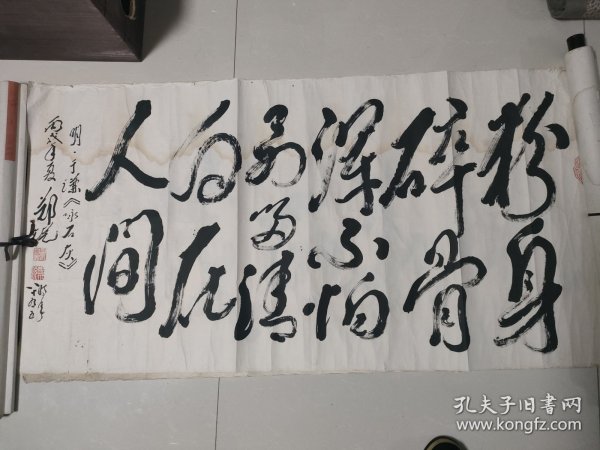 粉身
碎骨
渾不怕
要留清
白在
人間
明·于谦《咏石灰》
孔夫子旧书网
www.kongfz.com